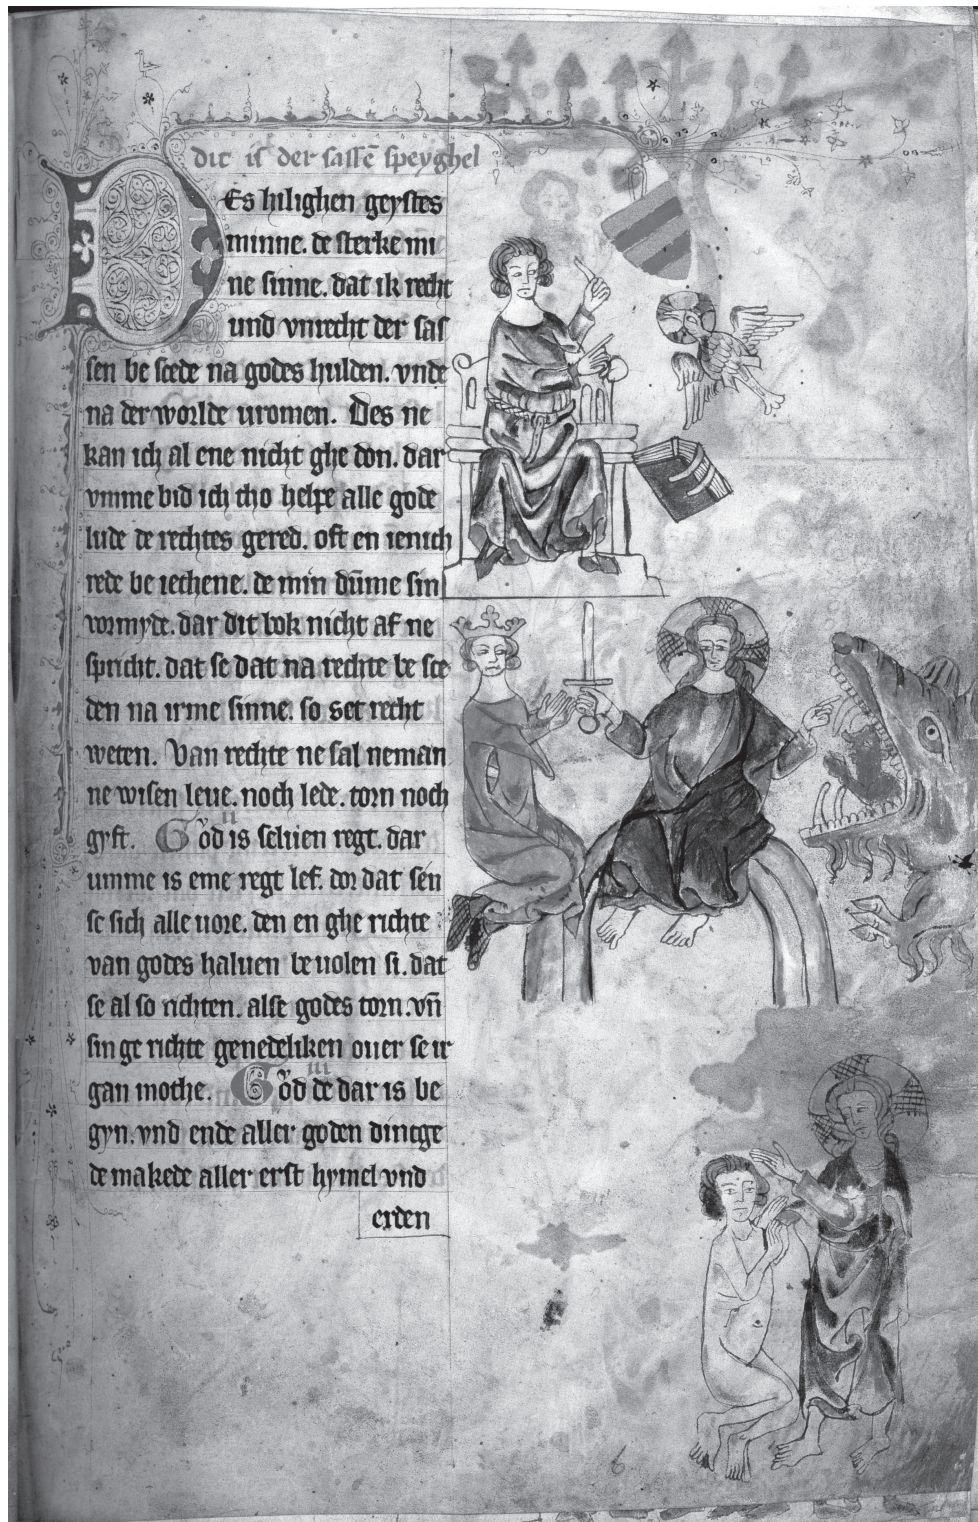 dit is der sassē speyghel
DEs hilighen geystes
minne. de sterke mi
ne sinne. dat ik recht
und vnrecht der sas
sen be scede na godes hulden. vnde
na der worlde uromen. Des ne
kan ich al ene nicht ghe don. dar
vmme bid ich tho helpe alle gode
lude de rechtes gered. oft en ienich
rede be iechene. de min dūme sin
vormyde. dar dit bok nicht af ne
spricht. dat se dat na rechte be sce
den na irme sinne. so set recht
weten. Van rechte ne sal neman
ne wisen leue. noch lede. torn noch
gyft. II God is seluen regt. dar
umme is eme regt lef. dor dat sen
se sich alle uore. den en ghe richte
van godes haluen beuolen si. dat
se al so richten. alse godes torn. vn̄
sin ge richte genedeliken ouer se ir
gan mothe. III God de dar is be
gyn. vnd ende aller goden dincge
de makede aller erst hymel vnd
erden
6